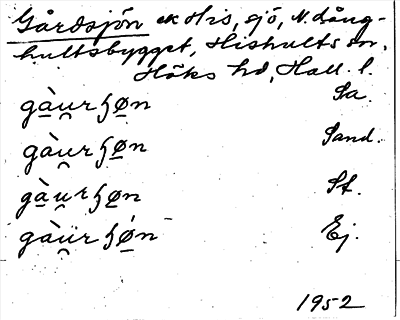 Gårdsjön ell. His, sjö, N. Lång-
hultsbygget, Hishults sn,
Höks hd, Hall. l.
gàu̯rɧøn Sa.
gàu̯rɧøn Sand.
gàu̯rɧøn St.
gàu̯rɧǿn Ej.
1952